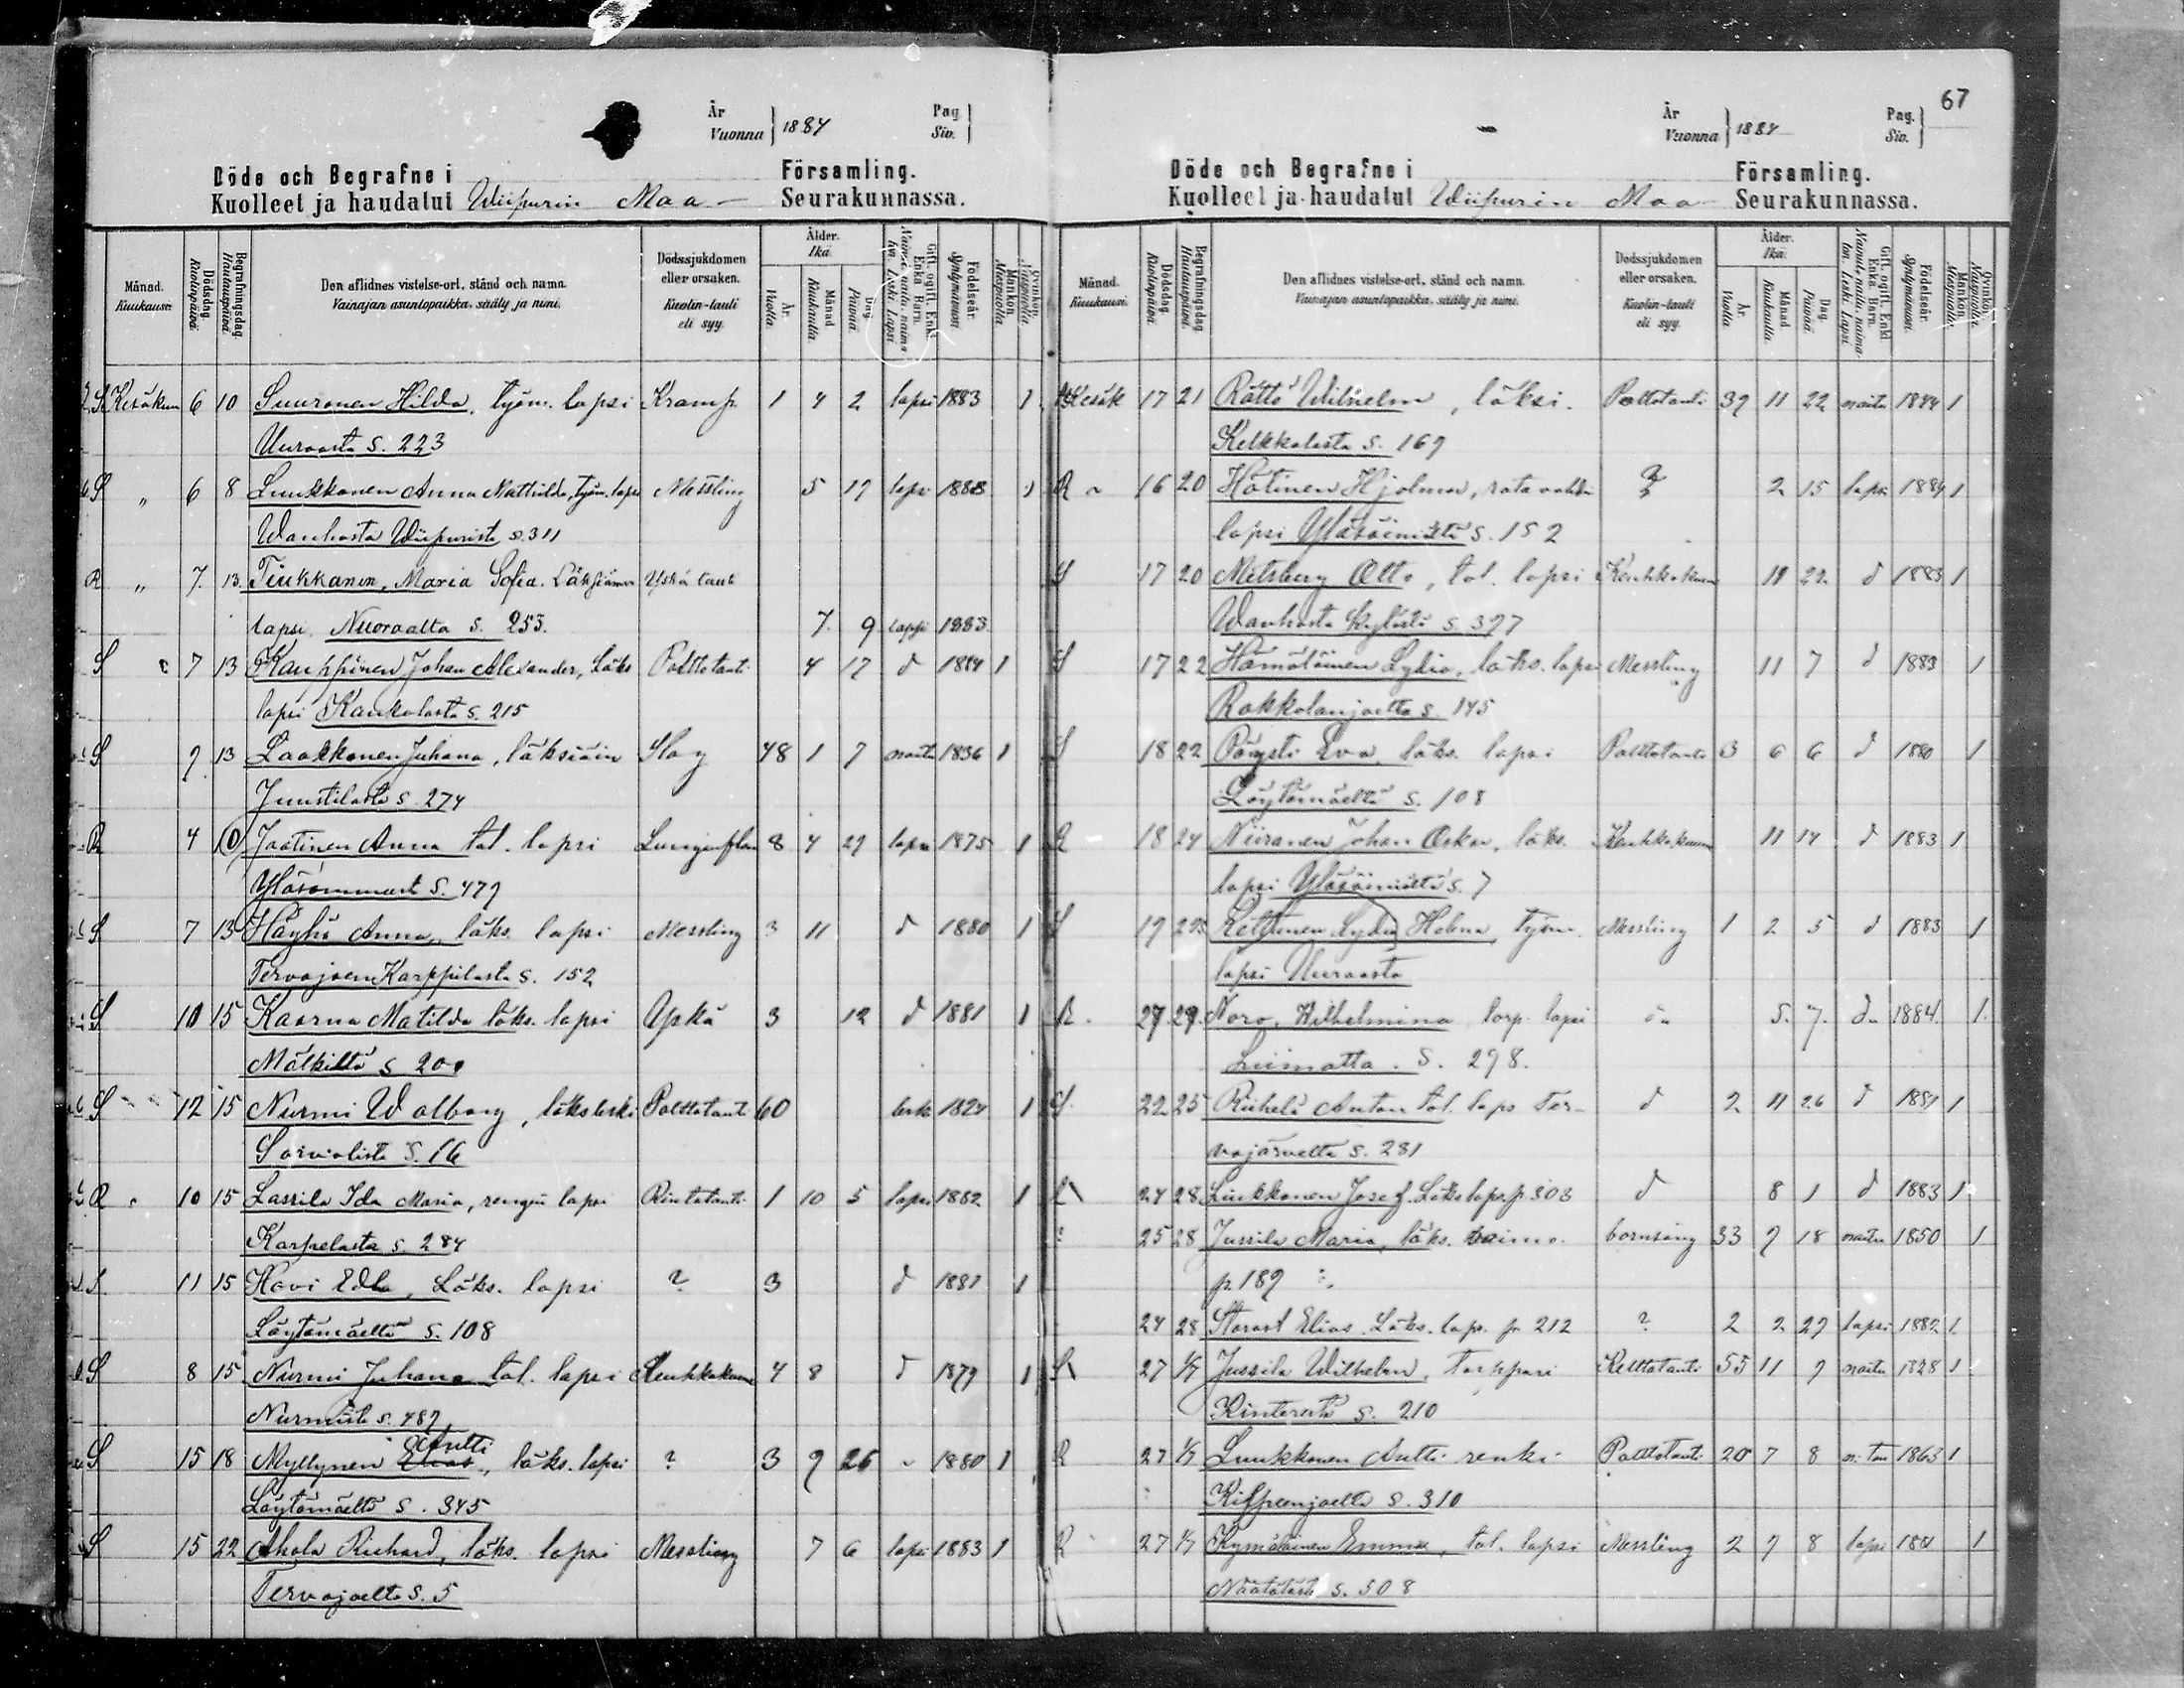 År
Vuonna } 1884
Pag.
Siv. }
Döde och Begrafne i Församling.
Kuolleet ja haudatut Wiipurin Maa- Seurakunnassa.
Månad. Kuukausi. Dödsdag. Kuolinpäivä. Begrafningsdag. Hautauspäivä. Den aflidnes vistelse-ort, stånd och namn. Vainajan asuntopaikka, sääty ja nimi. Dödssjukdomen eller orsaken. Kuolin-tauti eli syy. Ålder. Ikä. År. Vuotta Månad Kuukautta Dag. Päivää. Födelseår. Syntymävuosi. Mankön. Miespuolia Qvinkön.
S Kesäkuu 6 10 Suuronen Hilda, työm. lapsi Kramp. 1 4 2 lapsi 1883 1
Uuraasta S. 223
S " 6 8 Luukkonen Anna Mathilda, työm. lapsi Messling 5 19 lapsi 1883 1
Wanhasta Wiipurista S. 311
R " 7. 13. Tiukkanen, Maria Sofia. Yskä tauti
lapsi. Nuoraalta S. 253. 7. 9 lapsi 1883
S 7 13 Kauppinen Johan Alexander, Läks Polttotauti 4 17 d 1884 1
lapsi Kaukolasta S. 215
S 9 13 Laakkonen Juhana, läksiäin Slag 48 1 7 naitu 1836 1
Juustilasta S. 274
R 4 10 Jaatinen Anna tal. lapsi 8 4 29 lapsi 1875 1
S. 479
S 7 13 Häyhä Anna, läks. lapsi Messling 3 11 d 1880 1
Tervajoen Karppilasta S. 152
S 10 15 Kaarna Matilda läks. lapsi Yskä 3 12 d 1881 1
Mälkiltä S 200
S 12 15 Nurmi Walborg, läks leski Polttotauti 60 leski 1824 1
Sorvalista S. 16
R 10 15 Lassila Ida Maria, rengin lapsi Rintatauti 1 10 5 lapsi 1882 1
Karpelasta S. 284
S 11 15 Hovi Edla, Läks. lapsi ? 3 d 1881 1
Löytömäeltä S. 108
S 8 15 Nurmi Juhana tal. lapsi 4 8 d 1879 1
Nurmista S. 489
Antti
S 15 18 Myllynen Elias, läks. lapsi ? 3 9 26 " 1880 1
Löytömäeltä S. 345
S 15 22 Ahola Richard, läks. lapsi Messling 7 6 lapsi 1883 1
Tervajoelta S. 5
67
År
Vuonna } 1884
Pag.
Siv. }
Döde och Begrafne i Församling.
Kuolleet ja haudatut Wiipurin Maa- Seurakunnassa.
Månad. Kuukausi. Dödsdag. Kuolinpäivä. Begrafningsdag. Hautauspäivä. Den aflidnes vistelse-ort, stånd och namn. Vainajan asuntopaikka, sääty ja nimi. Dödssjukdomen eller orsaken. Kuolin-tauti eli syy. Ålder. Ikä. År. Vuotta Månad Kuukautta. Dag. Päivää. Födelseår. Syntymävuosi. Mankön. Miespuolia. Qvinkön.
Kesäk 17 21 Rättö Wilhelm, läksi. Polttotauti 39 11 22 naitu 1844 1
Kelkkalasta S. 169
R " 16 20 Hätinen Hjalmar, ratavahti ? 2 15 lapsi 1884 1
lapsi Yläsäiniältä S. 152
S 17 20 Metsberg Otto, tal. lapsi 11 22 d 1883 1
Wanhasta Kylästä S. 397
S 17 22 Hämäläinen Lydia, läks. lapsi Messling 11 7 d 1883 1
Rakkolanjoelta S. 145
S 18 22 Pöysti Eva, läks. lapsi Polttotauti 3 6 6 d 1880 1
Löytömäeltä S. 108
R 18 24 Niiranen Johan Oskar, läks. 11 14 d 1883 1
lapsi Yläsäiniältä S. 7
S 19 Lydia Helena, työm. Messling 1 2 5 d 1883 1
lapsi Uuraasta
R. 27 29. Noro, Wilhelmina torp. lapsi 5. 7. d. 1884. 1.
Liimatta. S. 298.
S. 22 25 Riihelä Anton tal. laps Ter- d 2 11 26 d 1881 1
vajärveltä S. 281
24 28 Liukkonen Josef. Läks laps. p 303 d 8 1 d 1883 1
25 28 Jussila Maria, läks. vaimo. 33 9 18 naitu 1850 1
p. 189
24 28 Elias. Läks. laps. p 212 ? 2 2 29 lapsi 1882 1.
S 27 1/7 Jussila Wilhelm, Torppari 55 11 9 naitu 1828 1
S. 210
R 27 1/7 Luukkonen Antti renki Polttotauti 20 7 8 1863 1
Kilpeenjoelta S. 310
R 27 1/7 Kymäläinen Emma, tal. lapsi Messling 2 9 8 lapsi 1
Näätälästä S. 508